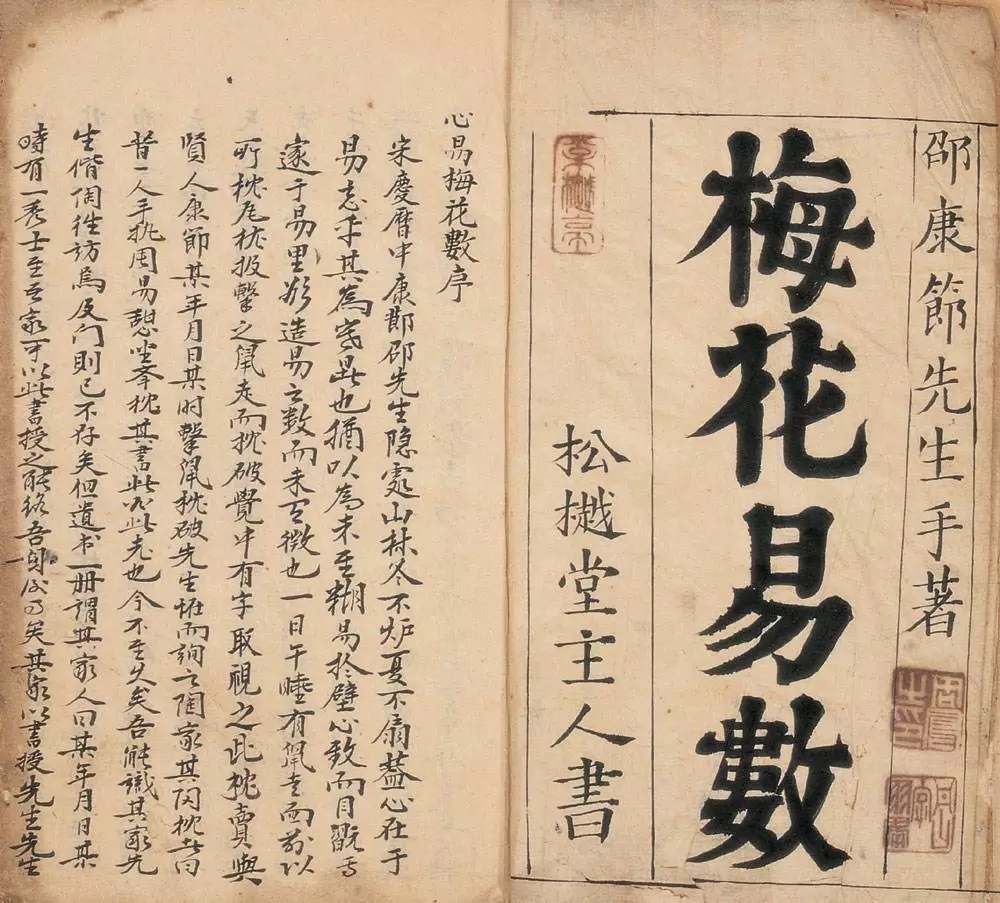 邵康節先生手著
梅花易數
松樾堂主人書
心易梅花數序
宋慶曆中康節邵先生隐處山林冬不炉夏不扇蓋心在于
易忘乎其為寒暑也猶以為未至糊易於壁心致而目翫焉
邃于易里欲造易之數而未有徵也一日午睡有鼠走而前以
所枕瓦枕投擊之鼠走而枕破覺中有字取視之此枕賣與
賢人康節某年月日某时擊鼠枕破先生怪而詢之陶家其陶枕者曰
昔一人手执周易憩坐举枕其書此必此老也今不至久矣吾能識其家先
生偕陶徃訪焉及门則已不存矣但遺书一册謂其家人曰某年月日某
時有一秀士至吾家可以此書授之能終吾身後事矣其家以書授先生先生